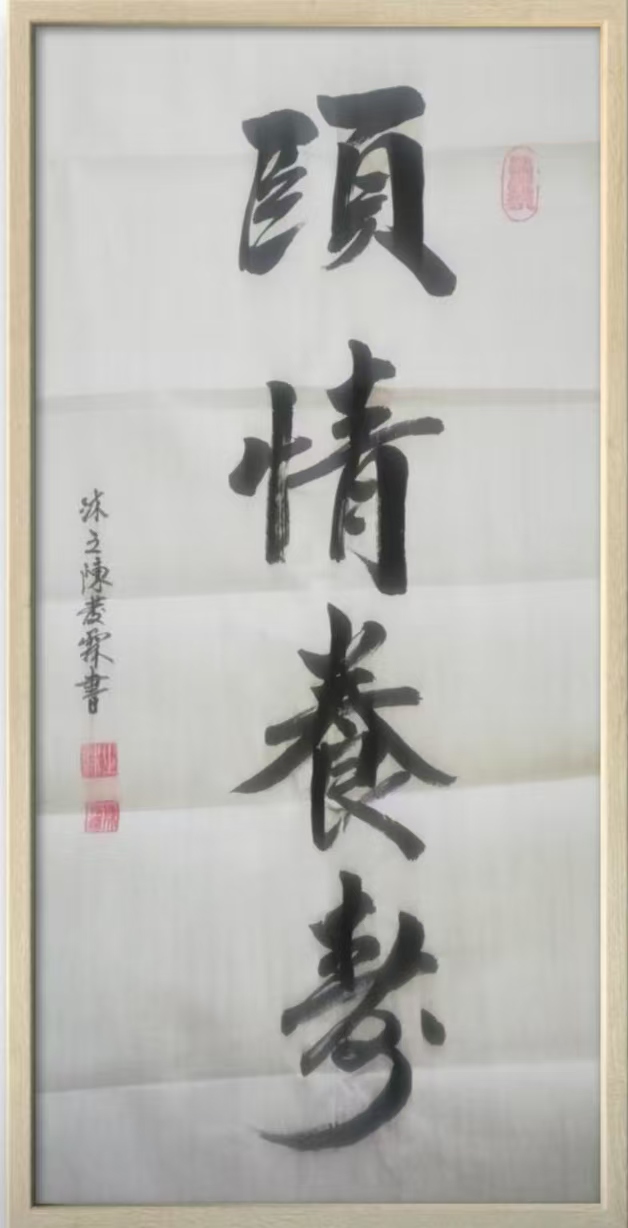 頤情養壽
沐之陳茂霖書